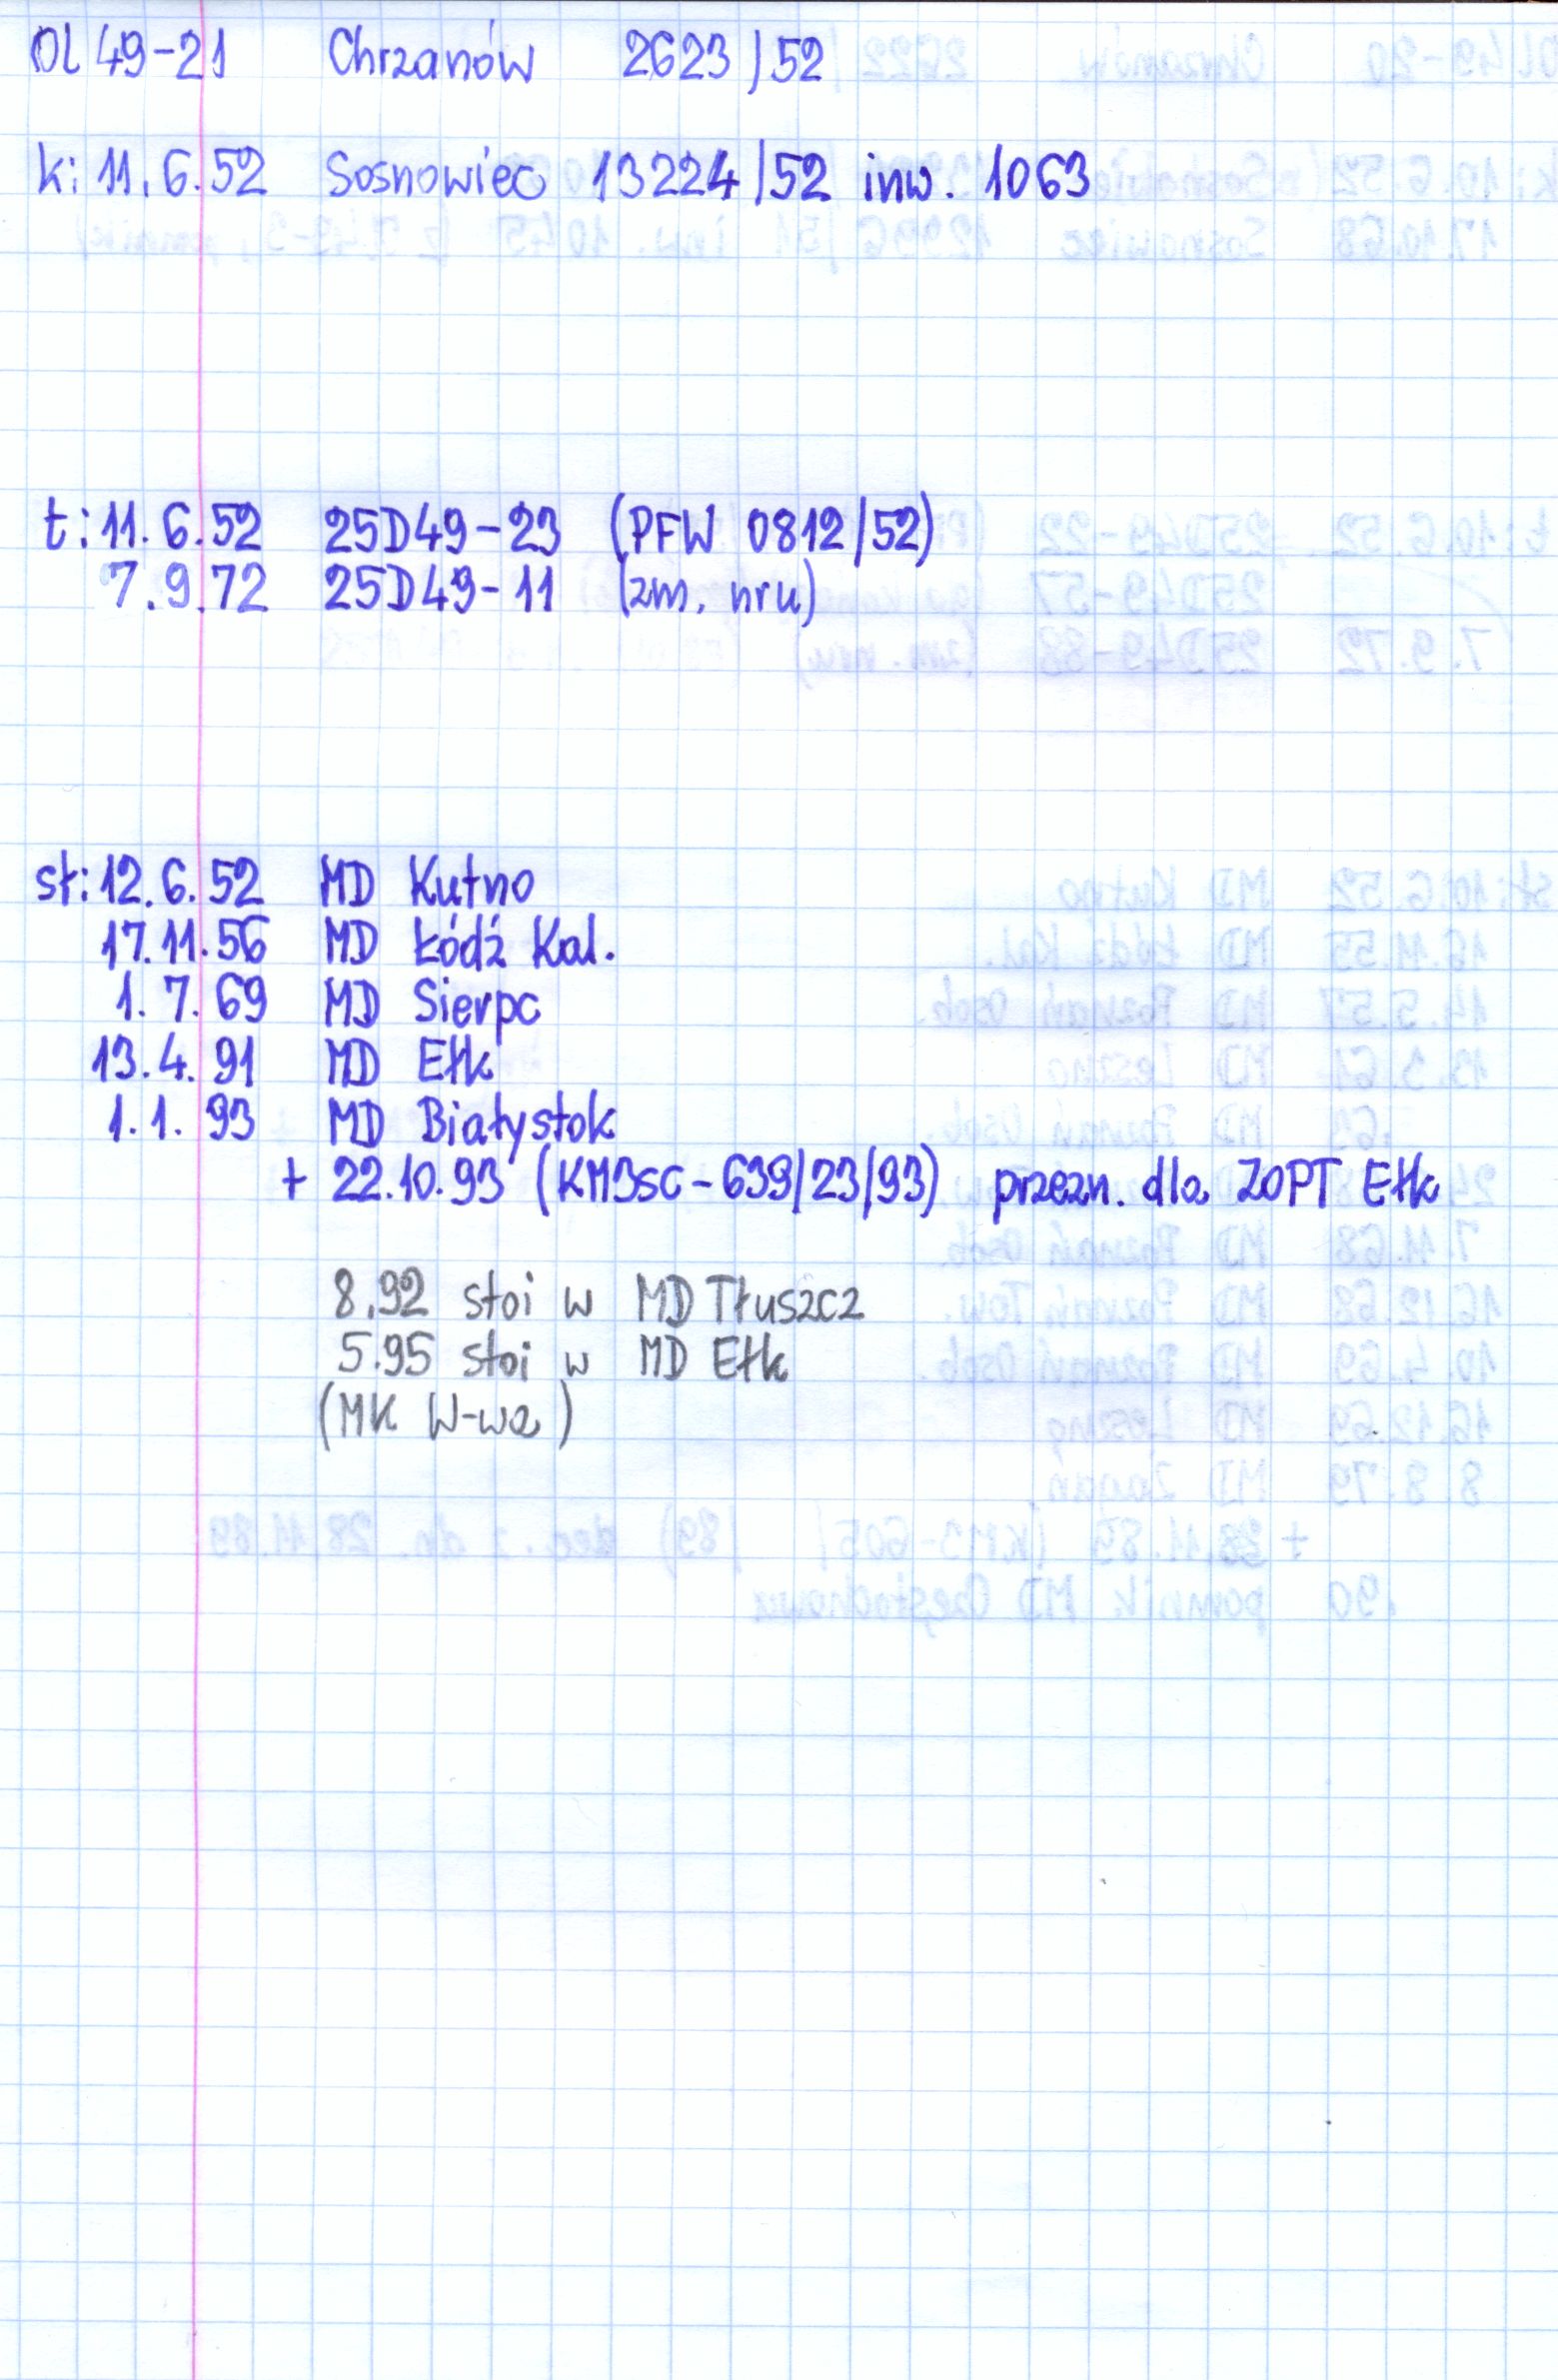 Ol 49-21 Chrzanów 2623/52
k: 11.6.52 Sosnowiec 13224/52 inw. 1063
t: 11.6.52 25D49-23 (PFW 0812/52)
7.9.72 25D49-11 (zm. nru)
st: 12.6.52 MD Kutno
17.11.56 MD Łódź Kal.
1.7.69 MD Sierpc
13.4.91 MD Ełk
1.1.93 MD Białystok
+ 22.10.93 (KM3sc-639/23/93) przezn. dla ZOPT Ełk
8.92 stoi w MD Tłuszcz
5.95 stoi w MD Ełk
(MK W-wa)